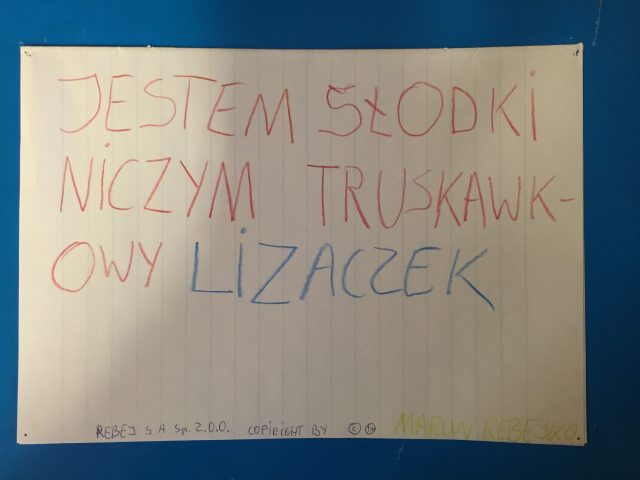 JESTEM SŁODKI
NiCZYM TRUSKAWK-
OWY LiZACZEK
REBEJ S.A Sp. Z.O.O. COPIRIGHT BY © ™ MARCIN REBEJKO